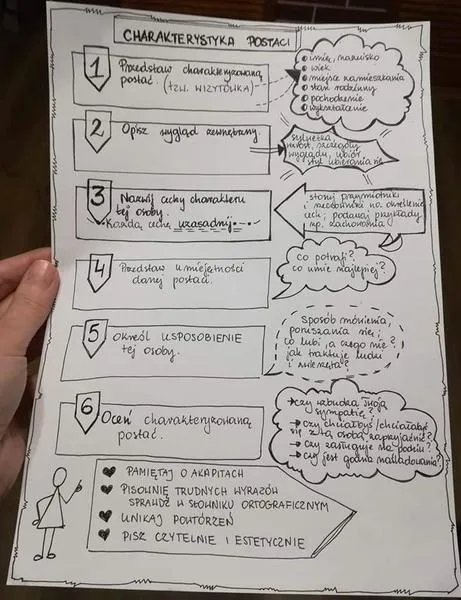 CHARAKTERYSTYKA POSTACI
1
Przedstaw charakteryzowaną
postać. (tzw. WIZYTÓWKA)
imię, nazwisko
wiek
miejsce zamieszkania
stan rodzinny
pochodzenie
wykształcenie
2
Opisz wygląd zewnętrzny.
sylwetka,
wzrost, szczegóły
wyglądu, ubiór,
styl ubierania się
3
Nazwij cechy charakteru
tej osoby.
Każdą cechę uzasadnij
stosuj przymiotniki
i rzeczowniki na określenie
cech; podawaj przykłady
np. zachowania
4
Przedstaw umiejętności
danej postaci.
co potrafi?
co umie najlepiej?
5
OKREŚL USPOSOBIENIE
tej osoby.
Sposób mówienia,
poruszania się;
co lubi, a czego nie?
jak traktuje ludzi
i zwierzęta?
6
Oceń charakteryzowaną
postać.
czy wzbudza Twoją
sympatię?
czy chciałbyś/chciałabyś
się z tą osobą zaprzyjaźnić?
czy zasługuje na podziw?
czy jest godna naśladowania?
PAMIĘTAJ O AKAPITACH
PISOWNIĘ TRUDNYCH WYRAZÓW
SPRAWDŹ W SŁOWNIKU ORTOGRAFICZNYM
UNIKAJ POWTÓRZEŃ
PISZ CZYTELNIE I ESTETYCZNIE